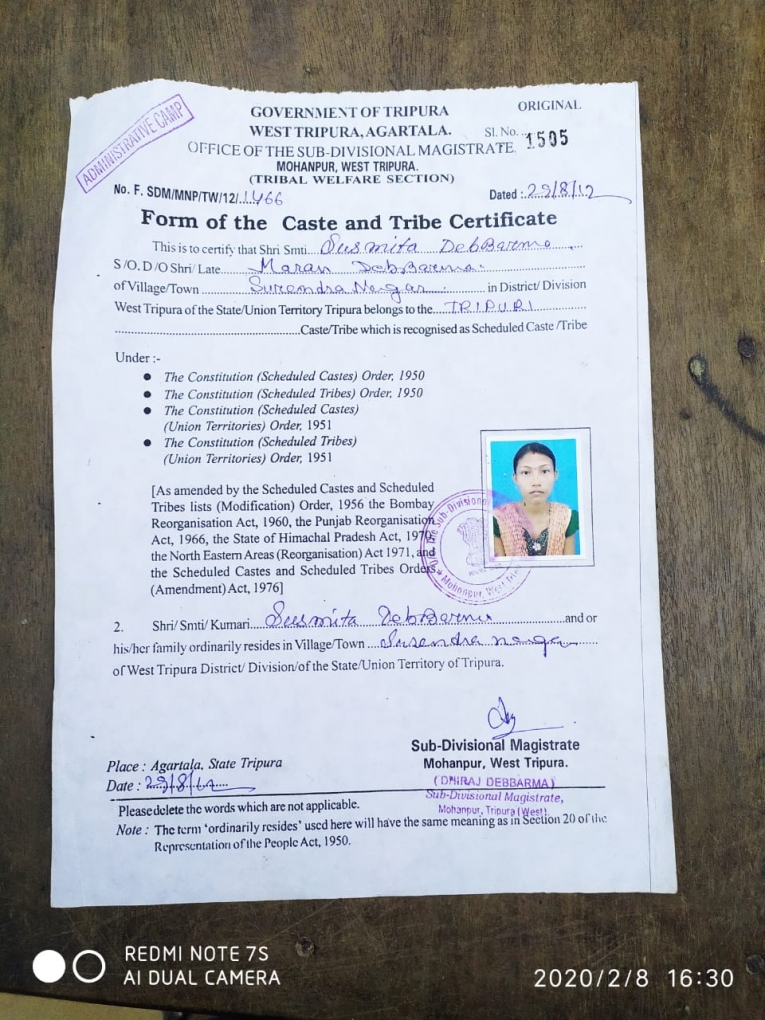 ADMINISTRATIVE CAMP
ORIGINAL
GOVERNMENT OF TRIPURA
WEST TRIPURA, AGARTALA.
Sl. No. 1505
OFFICE OF THE SUB-DIVISIONAL MAGISTRATE.
MOHANPUR, WEST TRIPURA.
(TRIBAL WELFARE SECTION)
No. F. SDM/MNP/TW/12/ 1466 Dated : 29/8/12
Form of the Caste and Tribe Certificate
This is to certify that Shri Smti Susmita DebBarma
S/O. D/O Shri/ Late Maran DebBarma
of Village/Town Surendra Nagar in District/ Division
West Tripura of the State/Union Territory Tripura belongs to the TRIPURI
Caste/Tribe which is recognised as Scheduled Caste /Tribe
Under :-
● The Constitution (Scheduled Castes) Order, 1950
● The Constitution (Scheduled Tribes) Order, 1950
● The Constitution (Scheduled Castes)
(Union Territories) Order, 1951
● The Constitution (Scheduled Tribes)
(Union Territories) Order, 1951
[As amended by the Scheduled Castes and Scheduled
Tribes lists (Modification) Order, 1956 the Bombay
Reorganisation Act, 1960, the Punjab Reorganisation
Act, 1966, the State of Himachal Pradesh Act, 1970,
the North Eastern Areas (Reorganisation) Act 1971, and
the Scheduled Castes and Scheduled Tribes Orders
(Amendment) Act, 1976]
the Sub-Divisional
Mohanpur, West
2. Shri/ Smti/ Kumari Susmita DebBarma and or
his/her family ordinarily resides in Village/Town Surendra nagar
of West Tripura District/ Division/of the State/Union Territory of Tripura.
Sub-Divisional Magistrate
Mohanpur, West Tripura.
(DHIRAJ DEBBARMA)
Sub-Divisional Magistrate,
Mohanpur, Tripura (West).
Place : Agartala, State Tripura
Date : 29/8/12
Please delete the words which are not applicable.
Note : The term 'ordinarily resides' used here will have the same meaning as in Section 20 of the
Representation of the People Act, 1950.
REDMI NOTE 7S
AI DUAL CAMERA
2020/2/8 16:30